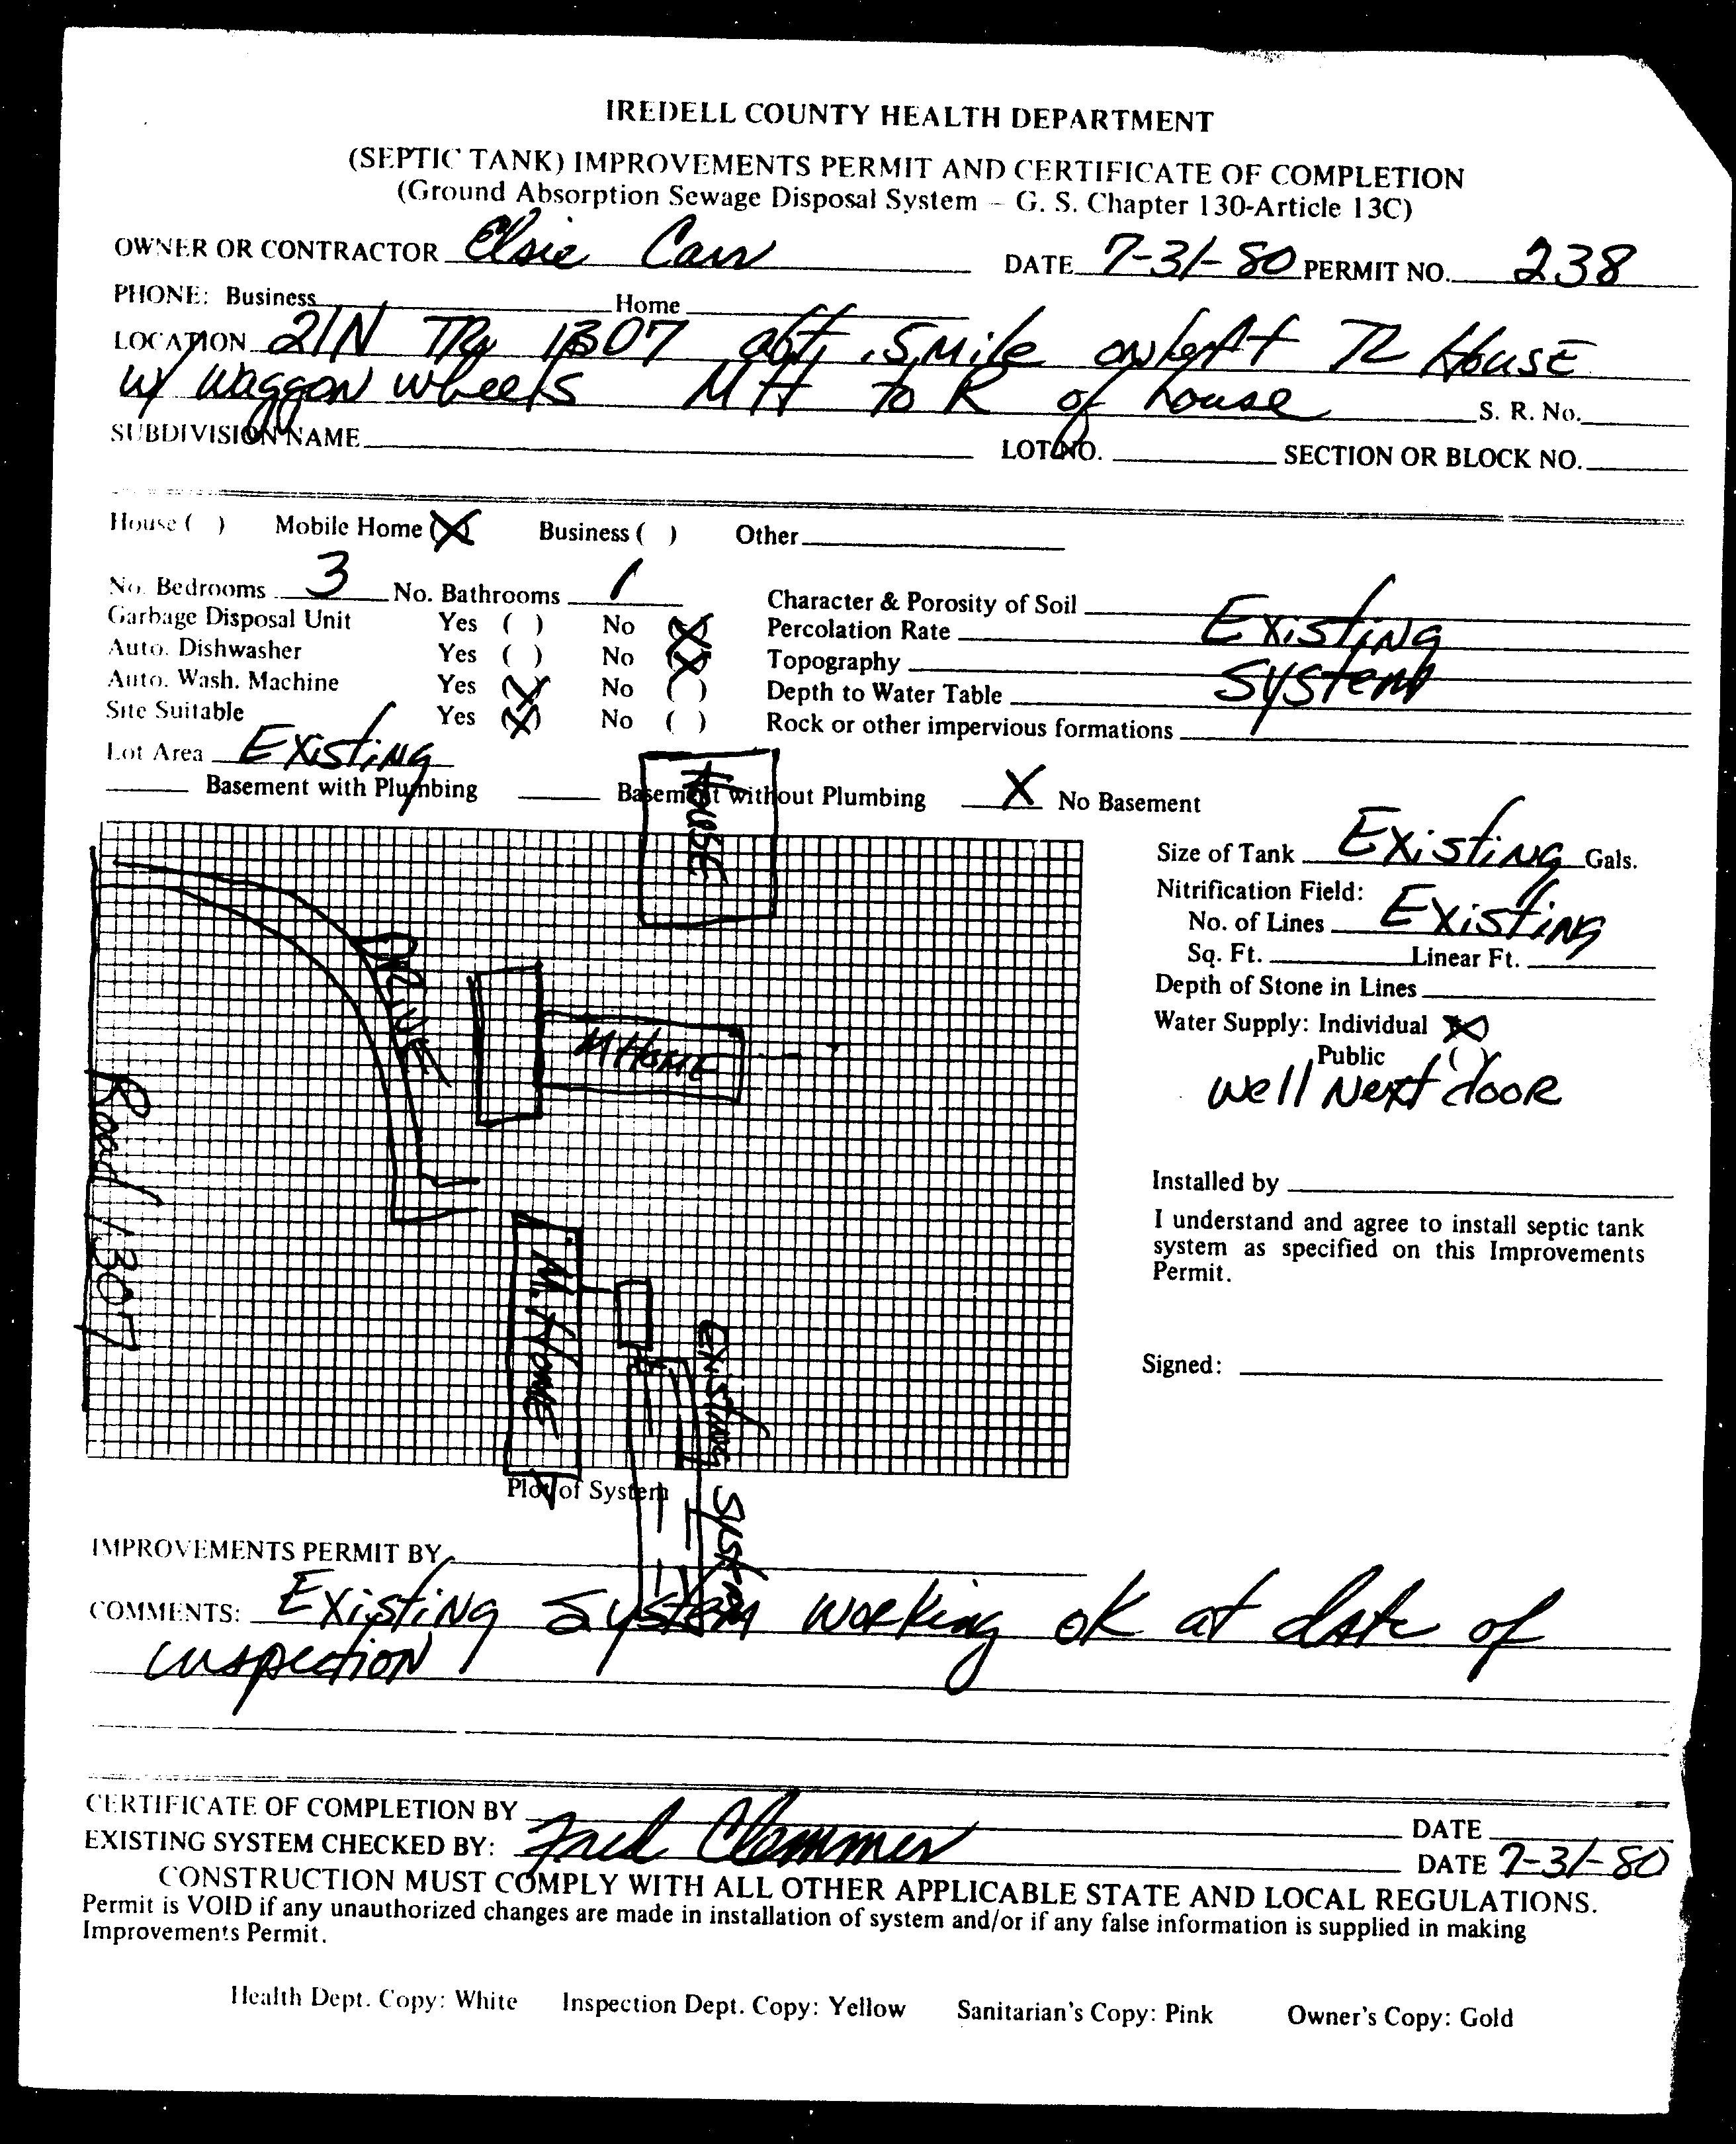 IREDELL COUNTY HEALTH DEPARTMENT
(SEPTIC TANK) IMPROVEMENTS PERMIT AND CERTIFICATE OF COMPLETION
(Ground Absorption Sewage Disposal System – G. S. Chapter 130-Article 13C)
OWNER OR CONTRACTOR Elsie Carr DATE 7-31-80 PERMIT NO. 238
PHONE: Business Home
LOCATION 21N 1307 .5 Mile on left House
w/ waggon wheels MH to R of house S. R. No.
SUBDIVISION NAME LOT NO. SECTION OR BLOCK NO.
House ( ) Mobile Home (X) Business ( ) Other
No. Bedrooms 3 No. Bathrooms 1
Garbage Disposal Unit Yes ( ) No (X)
Auto. Dishwasher Yes ( ) No (X)
Auto. Wash. Machine Yes (X) No ( )
Site Suitable Yes (X) No ( )
Lot Area Existing
Character & Porosity of Soil
Percolation Rate Existing
Topography
Depth to Water Table System
Rock or other impervious formations
Basement with Plumbing Basement without Plumbing X No Basement
House
Drive
M Home
Road 1307
M. Home
Existing System
Plot of System
Size of Tank Existing Gals.
Nitrification Field:
No. of Lines Existing
Sq. Ft. Linear Ft.
Depth of Stone in Lines
Water Supply: Individual (X)
Public ( )
well Next door
Installed by
I understand and agree to install septic tank
system as specified on this Improvements
Permit.
Signed:
IMPROVEMENTS PERMIT BY
COMMENTS: Existing System working ok at date of
inspection
CERTIFICATE OF COMPLETION BY DATE
EXISTING SYSTEM CHECKED BY: Fred Clemmer DATE 7-31-80
CONSTRUCTION MUST COMPLY WITH ALL OTHER APPLICABLE STATE AND LOCAL REGULATIONS.
Permit is VOID if any unauthorized changes are made in installation of system and/or if any false information is supplied in making
Improvements Permit.
Health Dept. Copy: White Inspection Dept. Copy: Yellow Sanitarian's Copy: Pink Owner's Copy: Gold